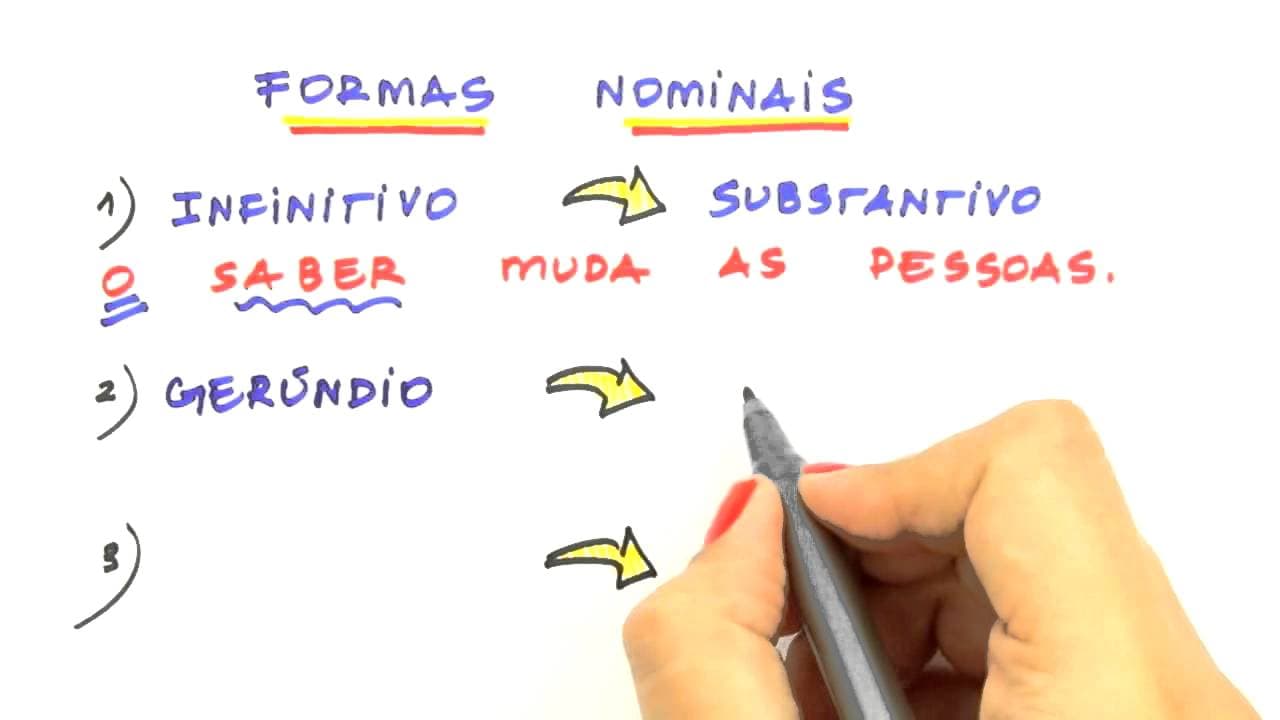 FORMAS NOMINAIS
1) INFINITIVO SUBSTANTIVO
O SABER MUDA AS PESSOAS.
2) GERÚNDIO
3)